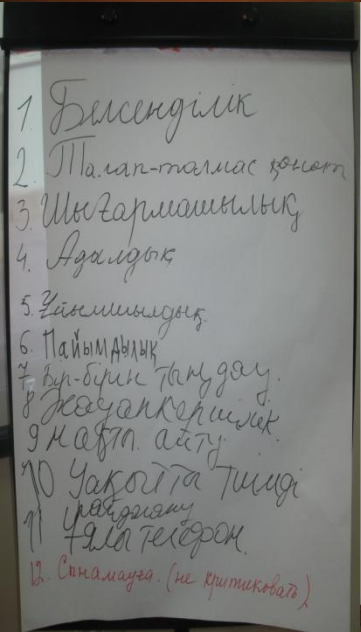 1. Белсенділік
2. Талап-талмас қонақ
3. Шығармашылық
4. Адалдық
5. Ұйымшылдық.
6. Пайымдылық
7 Бір-бірін тыңдау.
8 Жауапкершілік.
9 нақты айту
10 Уақытты тиімді
пайдалану
11 Ұялы телефон.
12. Сынамауға. (не критиковать)